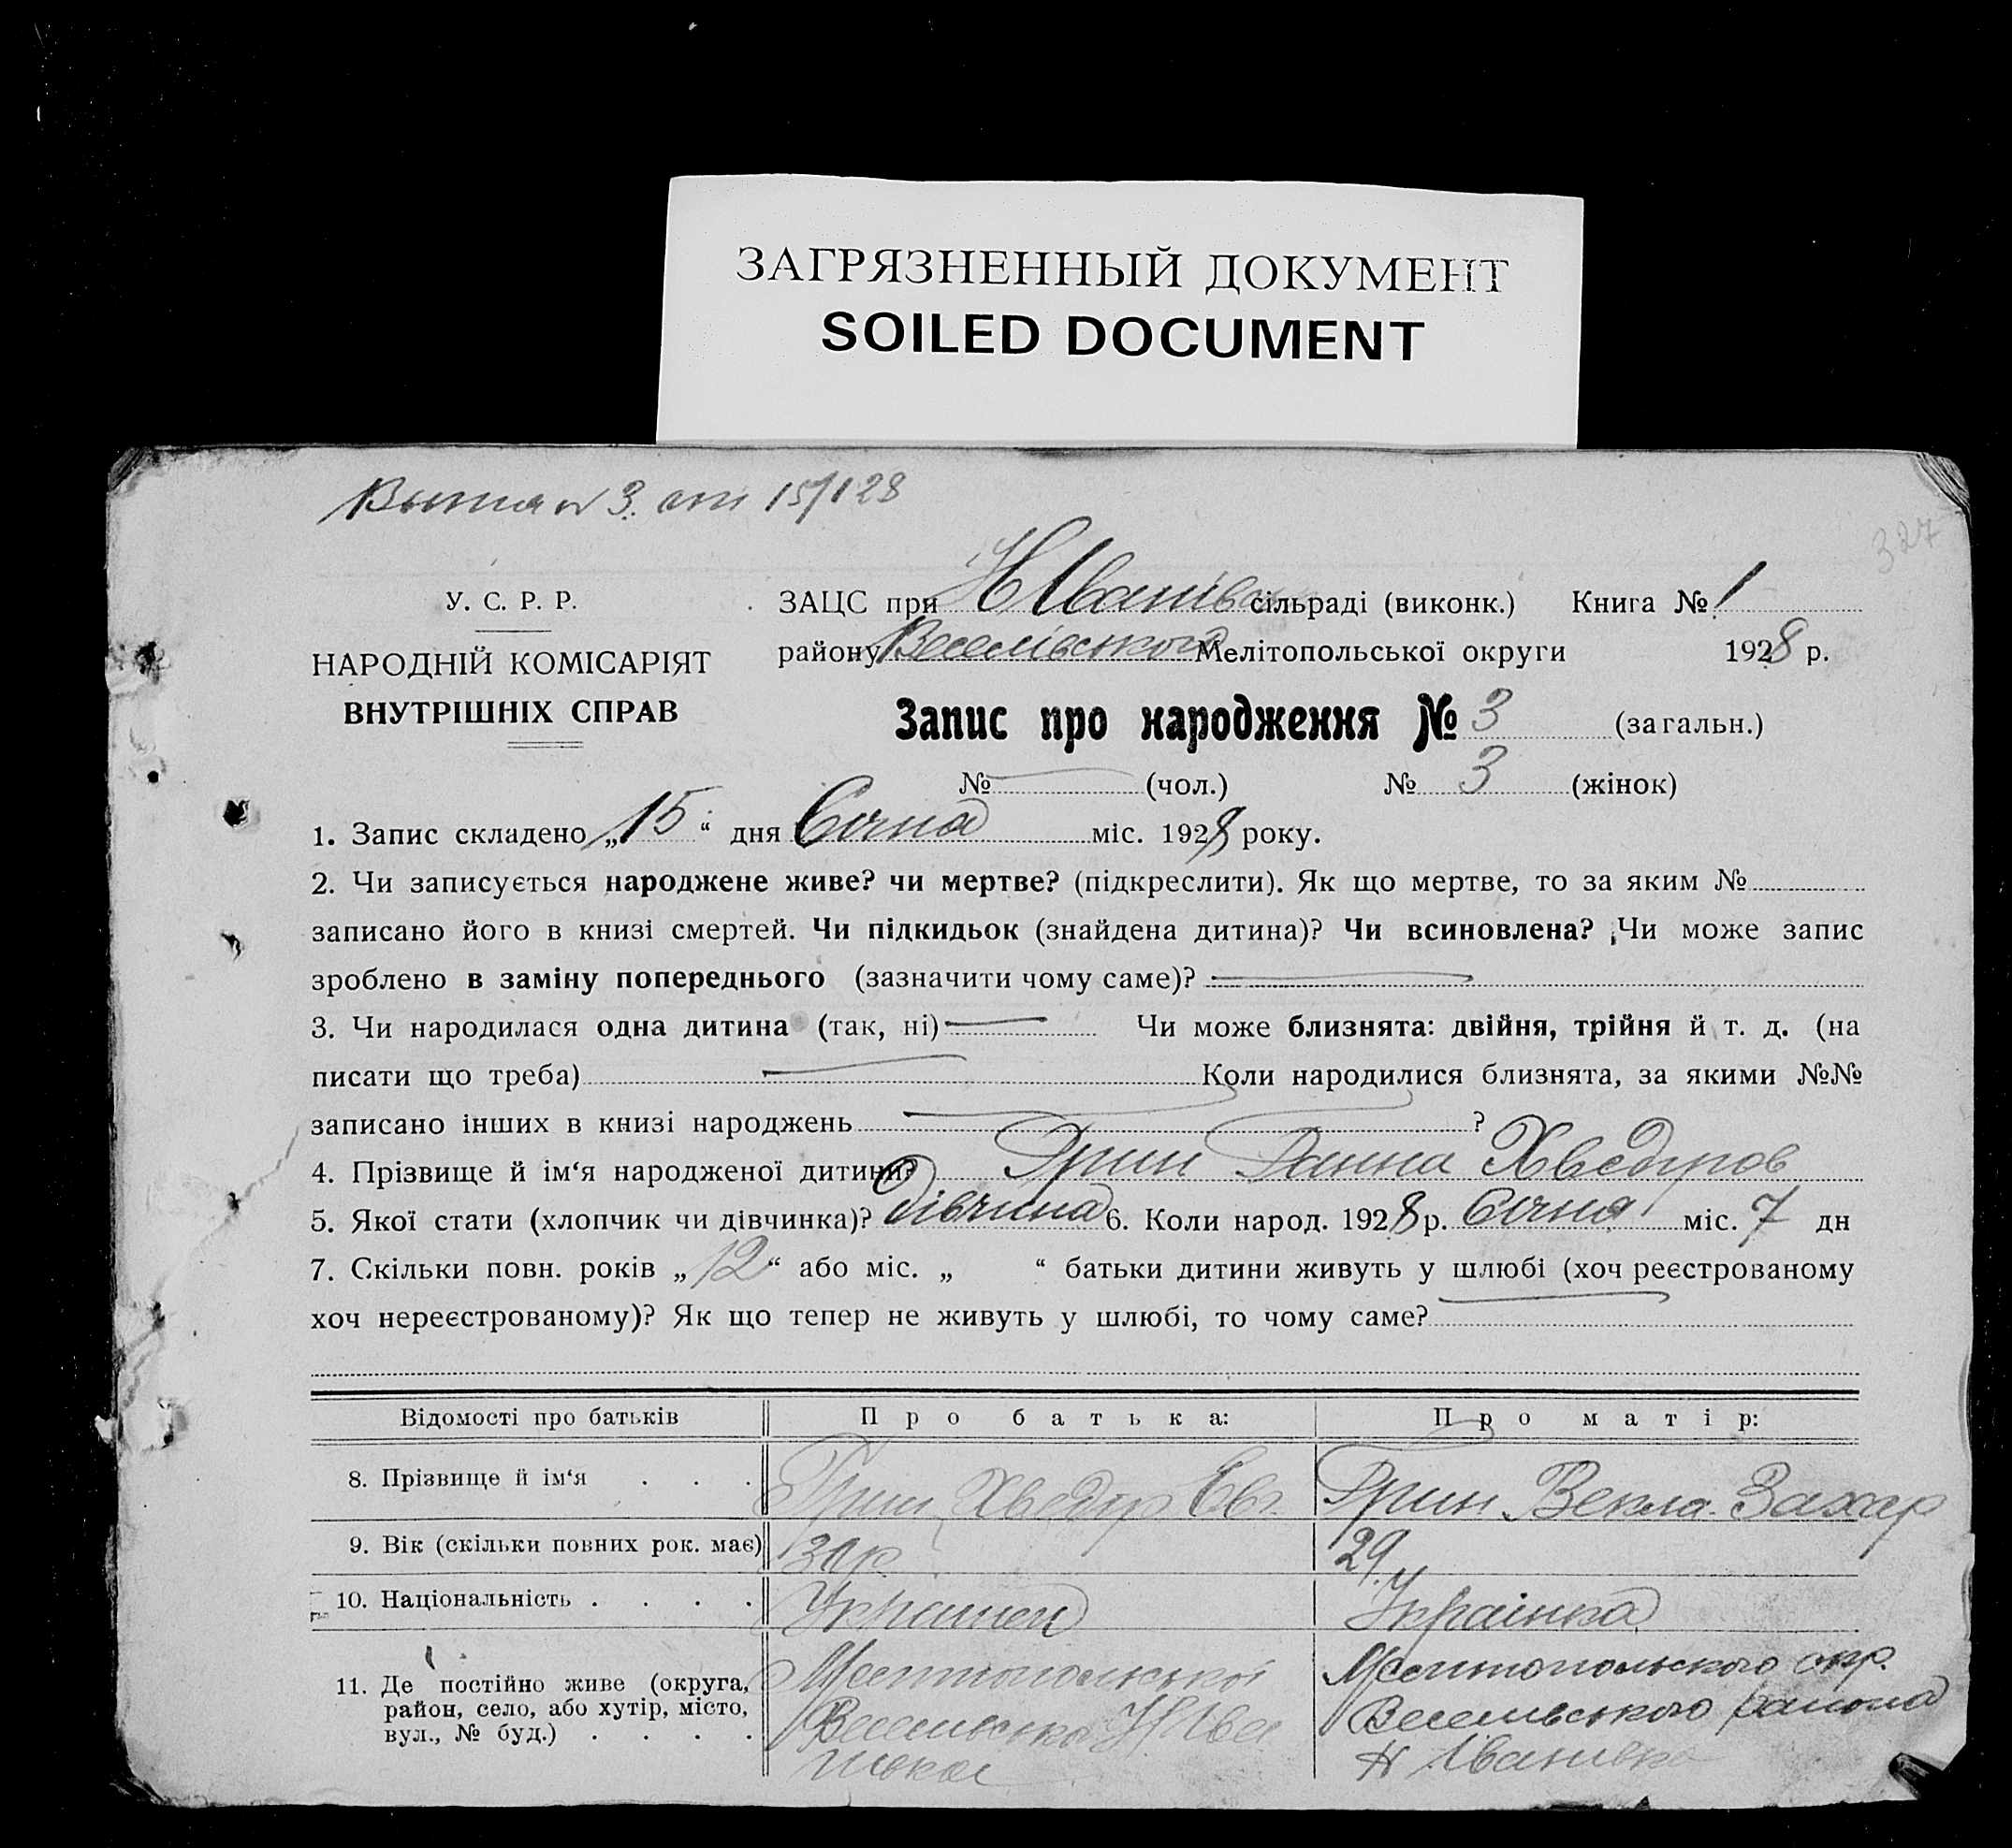 ЗАГРЯЗНЕННЫЙ ДОКУМЕНТ
SOILED DOCUMENT
3. от 15/1 28
327
У. С. Р. Р.
НАРОДНІЙ КОМІСАРІЯТ
ВНУТРІШНІХ СПРАВ
ЗАЦС при Н Іванівськ сільраді (виконк.) Книга № 1
району Веселівського Мелітопольської округи 1928 р.
Запис про народження № 3 (загальн.)
№ (чол.) № 3 (жінок)
1. Запис складено „15“ дня Січня міс. 1928 року.
2. Чи записується народжене живе? чи мертве? (підкреслити). Як що мертве, то за яким №
записано його в книзі смертей. Чи підкидьок (знайдена дитина)? Чи всиновлена? Чи може запис
зроблено в заміну попереднього (зазначити чому саме)?
3. Чи народилася одна дитина (так, ні) Чи може близнята: двійня, трійня й т. д. (на
писати що треба) Коли народилися близнята, за якими №№
записано інших в книзі народжень ?
4. Прізвище й ім‘я народженої дитини? Грин Ганна Хведоров
5. Якої стати (хлопчик чи дівчинка)? Дівчина 6. Коли народ. 1928 р. Січня міс. 7 дн
7. Скільки повн. років „12“ або міс. „ “ батьки дитини живуть у шлюбі (хоч реєстрованому
хоч нереєстрованому)? Як що тепер не живуть у шлюбі, то чому саме?
Відомості про батьків Про батька: Про матір:
8. Прізвище й ім‘я . . . Грин Хведір Евг. Грин Векла Захар
9. Вік (скільки повних рок. має) 29
10. Національність . . . . Українец Українка
11. Де постійно живе (округа, Мелітопольської Мелітопольского окр.
район, село, або хутір, місто, Веселівська Н Іва Веселивського района
вул., № буд.) . . . . нівка Н Іванівка